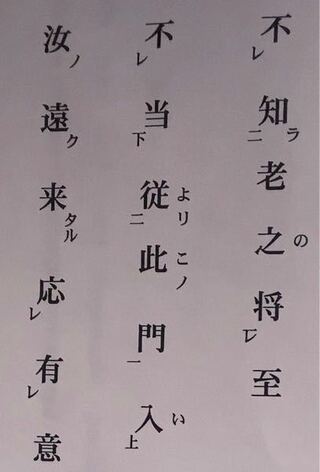 不レ知ラ二老之の将一レ至
不レ当下従より二此こノ門一入い上
汝ノ遠ク来タル応レ有レ意